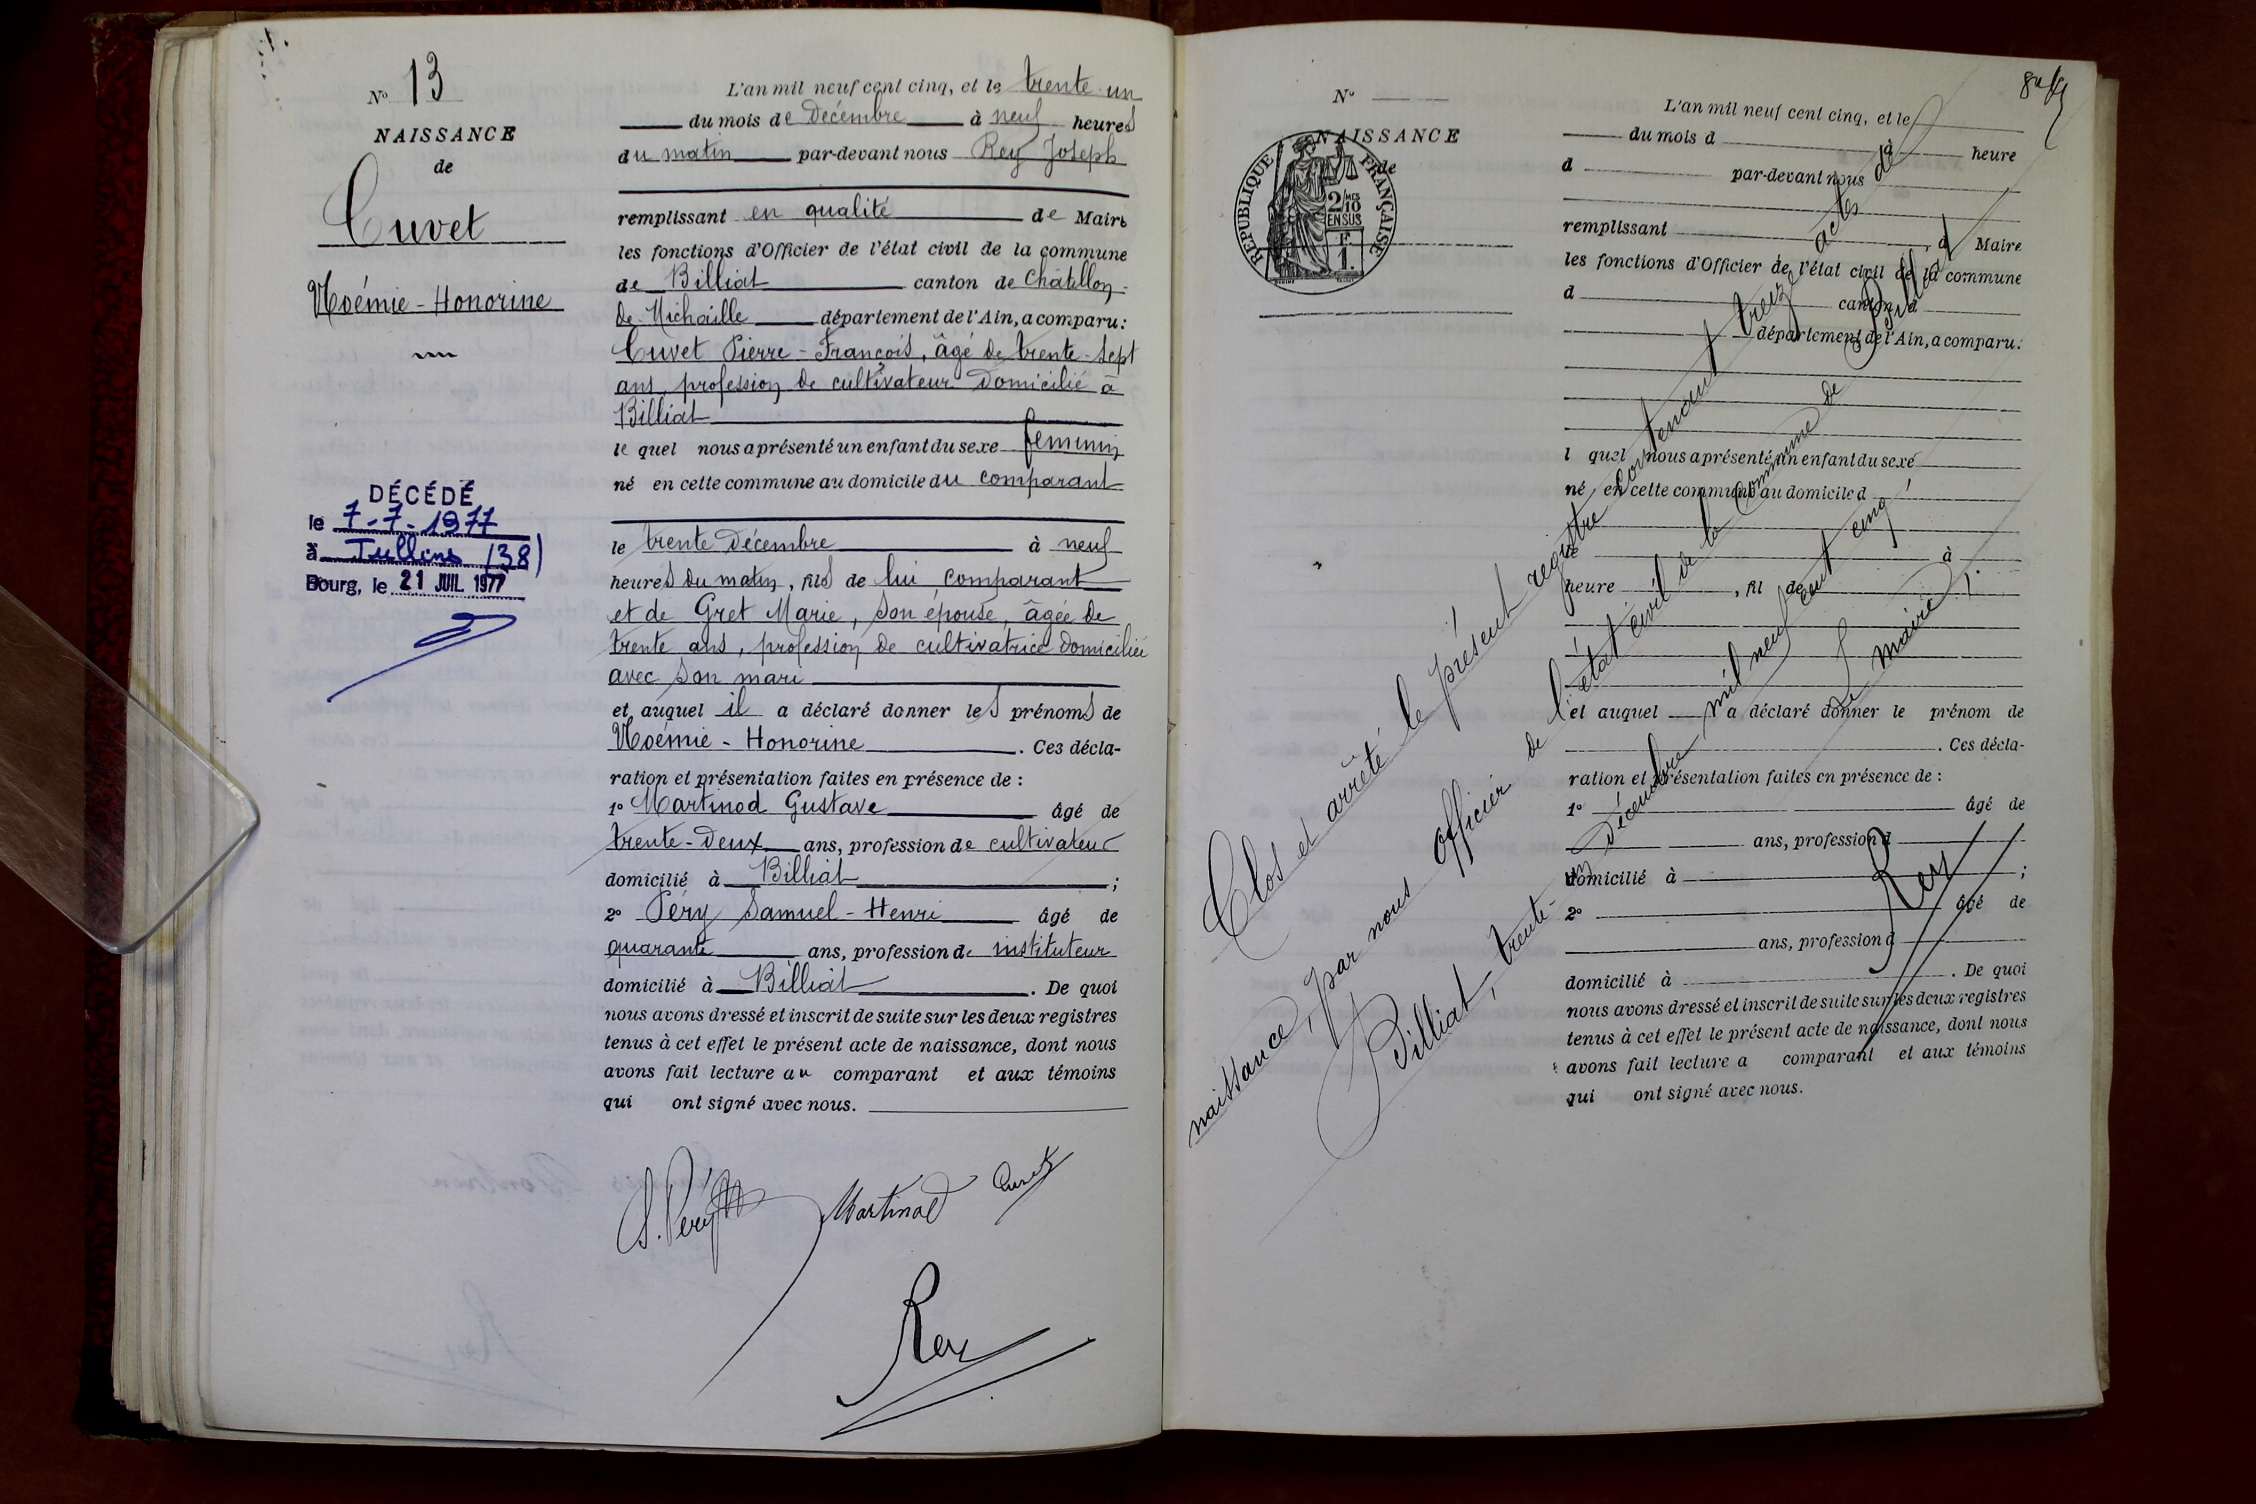 N° 13
NAISSANCE
de
Cuvet
Noémie - Honorine
DÉCÉDÉ
le 7-7-1977
à Tullins (38)
Bourg, le 21 JUIL 1977
L'an mil neuf cent cinq, et le trente un
du mois de Décembre à neuf heures
du matin par-devant nous Rey Joseph
remplissant en qualité de Maire
les fonctions d'Officier de l'état civil de la commune
de Billiat canton de Châtillon-
de-Michaille département de l'Ain, a comparu:
Cuvet Pierre-François, âgé de trente-sept
ans, profession de cultivateur domicilié à
Billiat
lequel nous a présenté un enfant du sexe féminin
né en cette commune au domicile du comparant
le trente Décembre à neuf
heures du matin, fils de lui comparant
et de Gret Marie, son épouse, âgée de
trente ans, profession de cultivatrice domiciliée
avec son mari
et auquel il a déclaré donner les prénoms de
Noémie - Honorine. Ces décla-
ration et présentation faites en présence de :
1° Martinod Gustave âgé de
trente-deux ans, profession de cultivateur
domicilié à Billiat ;
2° Péry Samuel-Henri âgé de
quarante ans, profession de instituteur
domicilié à Billiat. De quoi
nous avons dressé et inscrit de suite sur les deux registres
tenus à cet effet le présent acte de naissance, dont nous
avons fait lecture au comparant et aux témoins
qui ont signé avec nous.
S. Péry Martinod Cuvet
Rey
N°
NAISSANCE
de
RÉPUBLIQUE FRANÇAISE
2/10 MES
EN SUS
F.
1.
L'an mil neuf cent cinq, et le
du mois d à heure
d par-devant nous
remplissant d Maire
les fonctions d'Officier de l'état civil de la commune
d canton d
département de l'Ain, a comparu:
l quel nous a présenté un enfant du sexe
né en cette commune au domicile d
le à
heure , fil de
et auquel a déclaré donner le prénom de
. Ces décla-
ration et présentation faites en présence de :
1° âgé de
ans, profession d
domicilié à ;
2° âgé de
ans, profession d
domicilié à . De quoi
nous avons dressé et inscrit de suite sur les deux registres
tenus à cet effet le présent acte de naissance, dont nous
avons fait lecture a comparant et aux témoins
qui ont signé avec nous.
Clos et arrêté le présent registre contenant treize actes de
naissance, par nous officier de l'état civil de la commune de Billiat
Billiat, trente-un Décembre mil neuf cent cinq
Le maire,
Rey